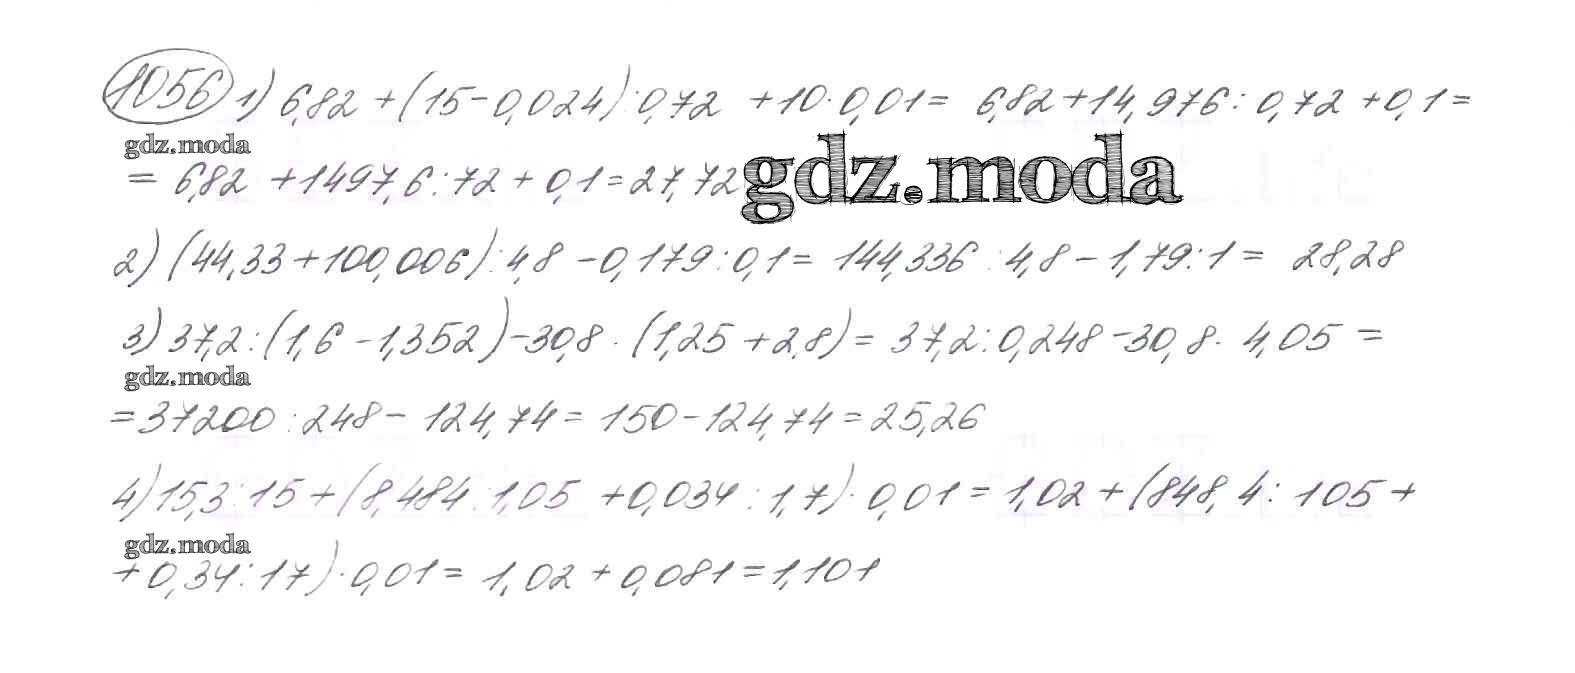 1056 1) 6,82 + (15 - 0,024) : 0,72 + 10 · 0,01 = 6,82 + 14,976 : 0,72 + 0,1 =
gdz.moda
= 6,82 + 1497,6 : 72 + 0,1 = 27,72 gdz.moda
2) (44,33 + 100,006) : 4,8 - 0,179 : 0,1 = 144,336 : 4,8 - 1,79 : 1 = 28,28
3) 37,2 : (1,6 - 1,352) - 30,8 · (1,25 + 2,8) = 37,2 : 0,248 - 30,8 · 4,05 =
gdz.moda
= 37200 : 248 - 124,74 = 150 - 124,74 = 25,26
4) 15,3 : 15 + (8,484 : 1,05 + 0,034 : 1,7) · 0,01 = 1,02 + (848,4 : 105 +
gdz.moda
+ 0,34 : 17) · 0,01 = 1,02 + 0,081 = 1,101